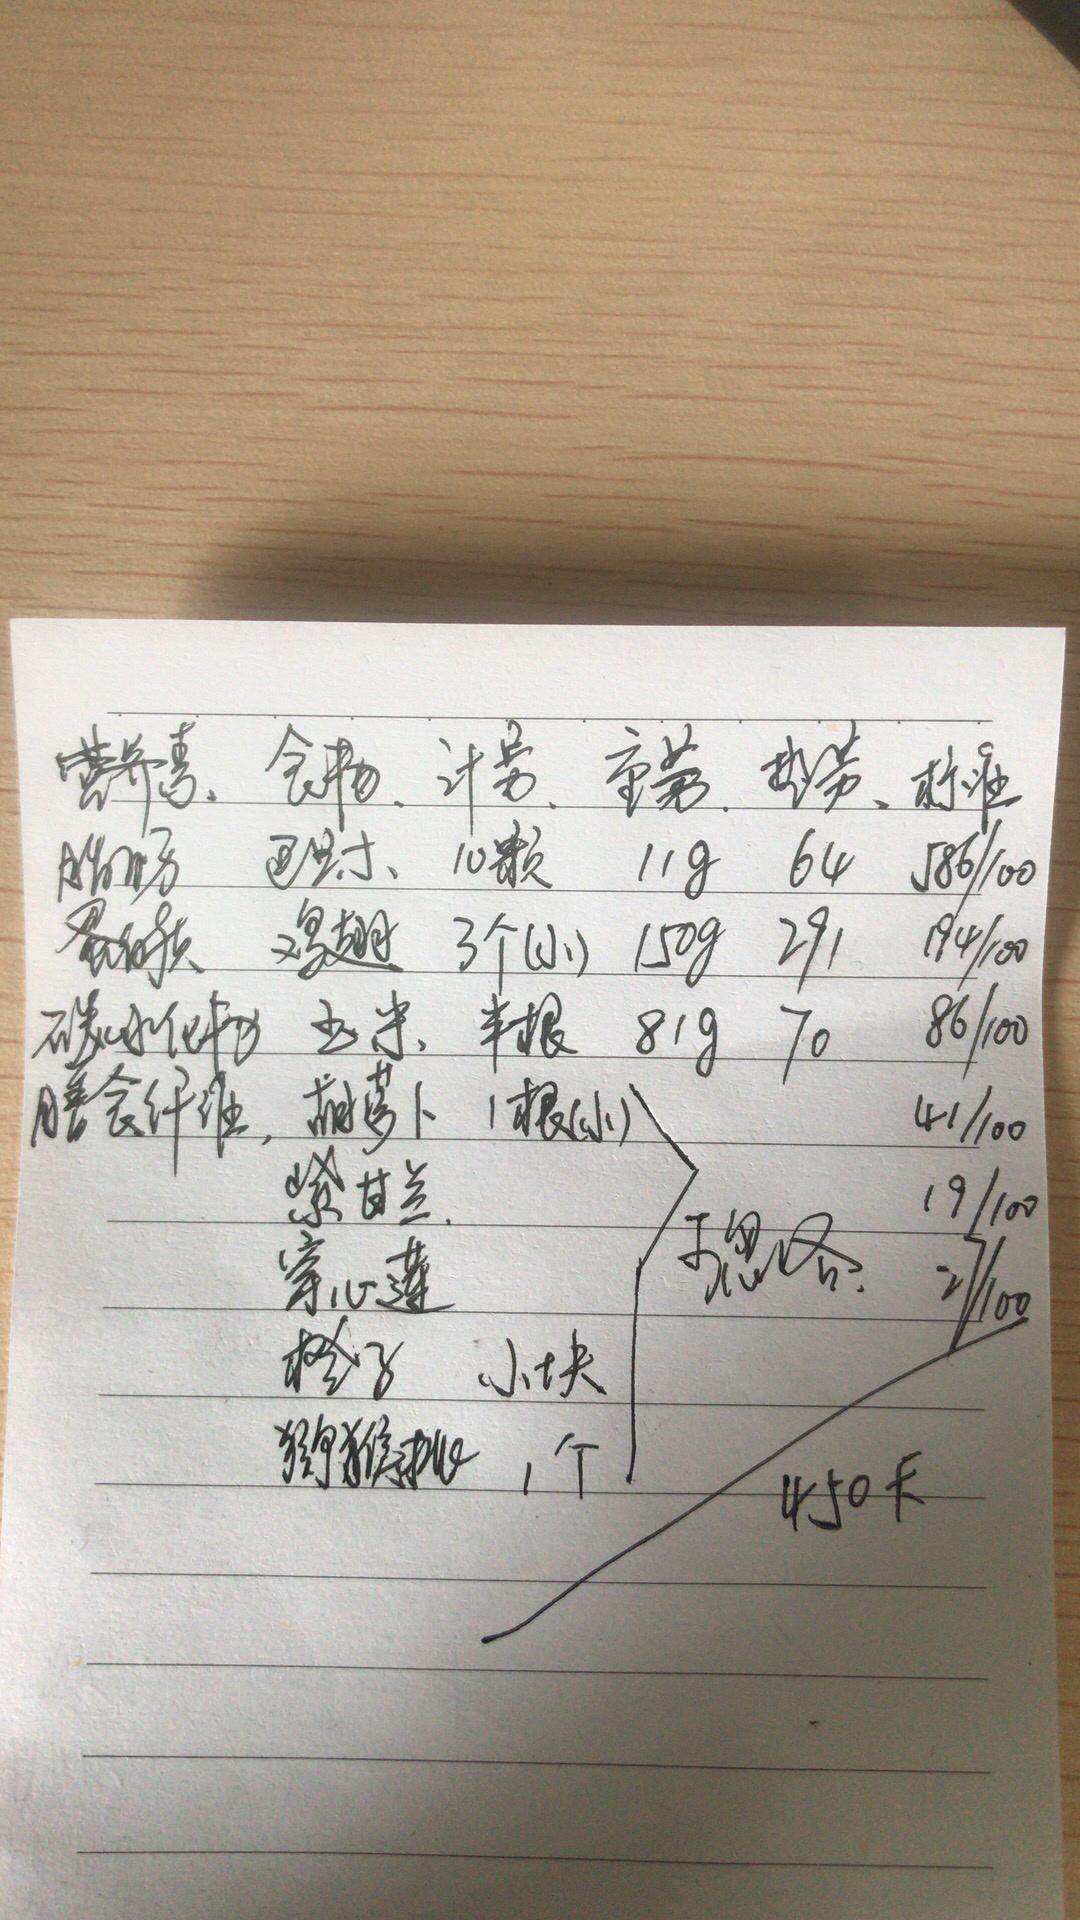 营养素、食物、计量、重量、热量、标准
脂肪 巴旦木、10颗 11g 64 586/100
蛋白质 鸡翅 3个(小) 150g 291 194/100
碳水化物 玉米、半根 81g 70 86/100
膳食纤维、胡萝卜 1根(小) 41/100
紫甘兰、 19/100
可忽略
穿心莲 27/100
橙子 小块
猕猴桃 1个
450卡